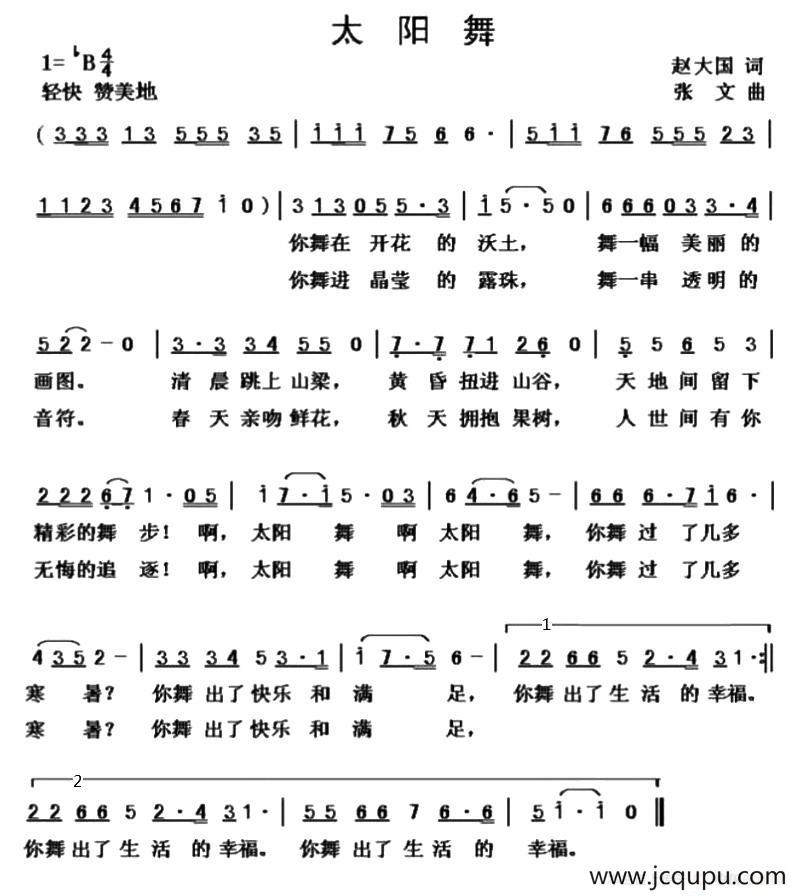 太阳舞
1=♭B4/4 赵大国 词
轻快 赞美地 张 文 曲
(333 13 555 35 | i i i i 75 6 6· | 5 i i 76 555 23 |
1123 4567 i 0) | 3 13055·3 | i 5·50 | 6660 33·4 |
你舞在 开花 的 沃土, 舞一幅 美丽 的
你舞进 晶莹 的 露珠, 舞一串 透明 的
522-0 | 3·3 34 55 0 | 7·7 71 26 0 | 5 5 6 5 3 |
画图。 清 晨 跳上 山梁, 黄 昏 扭进 山谷, 天 地 间 留 下
音符。 春 天 亲吻 鲜花, 秋 天 拥抱 果树, 人 世 间 有 你
222 67 1·05 | i 7·i 5·03 | 6 4·6 5- | 66 6·7 i 6· |
精彩的舞 步! 啊, 太阳 舞 啊 太阳 舞, 你舞 过 了几多
无悔的追 逐! 啊, 太阳 舞 啊 太阳 舞, 你舞 过 了几多
1
4 35 2- | 33 34 5 3·1 | i 7·5 6- | 22 66 5 2·4 31·:‖
寒 暑? 你舞 出了 快乐 和 满 足, 你舞 出了 生 活 的 幸福。
寒 暑? 你舞 出了 快乐 和 满 足,
2
22 66 5 2·4 31· | 55 66 7 6·6 | 5 i·i 0 ‖
你舞 出了 生 活 的 幸福。 你舞 出了 生 活 的 幸福。
www.jcqupu.com